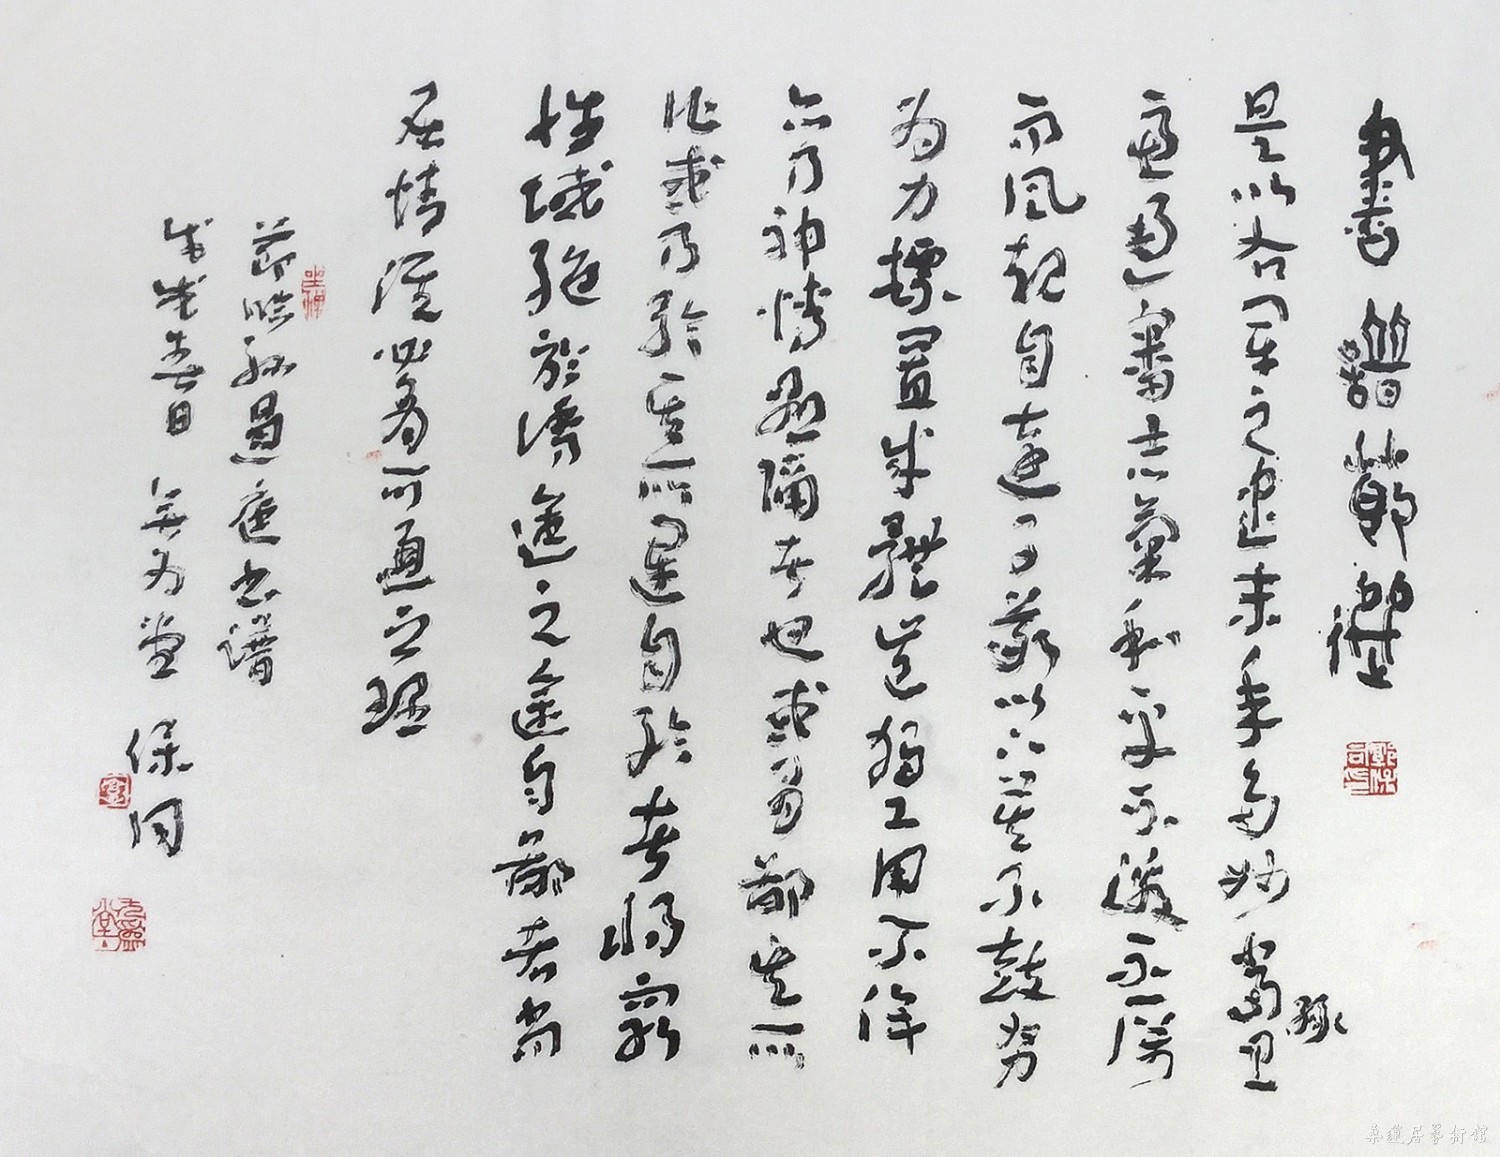 書譜節
是以右軍之書末年多妙當緣思
慮通審志氣和平不激不厲
而風規自遠子敬以下莫不鼓努
為力標置成體豈獨工用不侔
亦乃神情懸隔者也或有鄙其所
作或乃矜其所運自矜者將窮
性域絕於誘進之途自鄙者尚
屈情涯必有可通之理
節臨孫過庭書譜
戊戌春日 無為堂 保同
桑蓮居藝術館